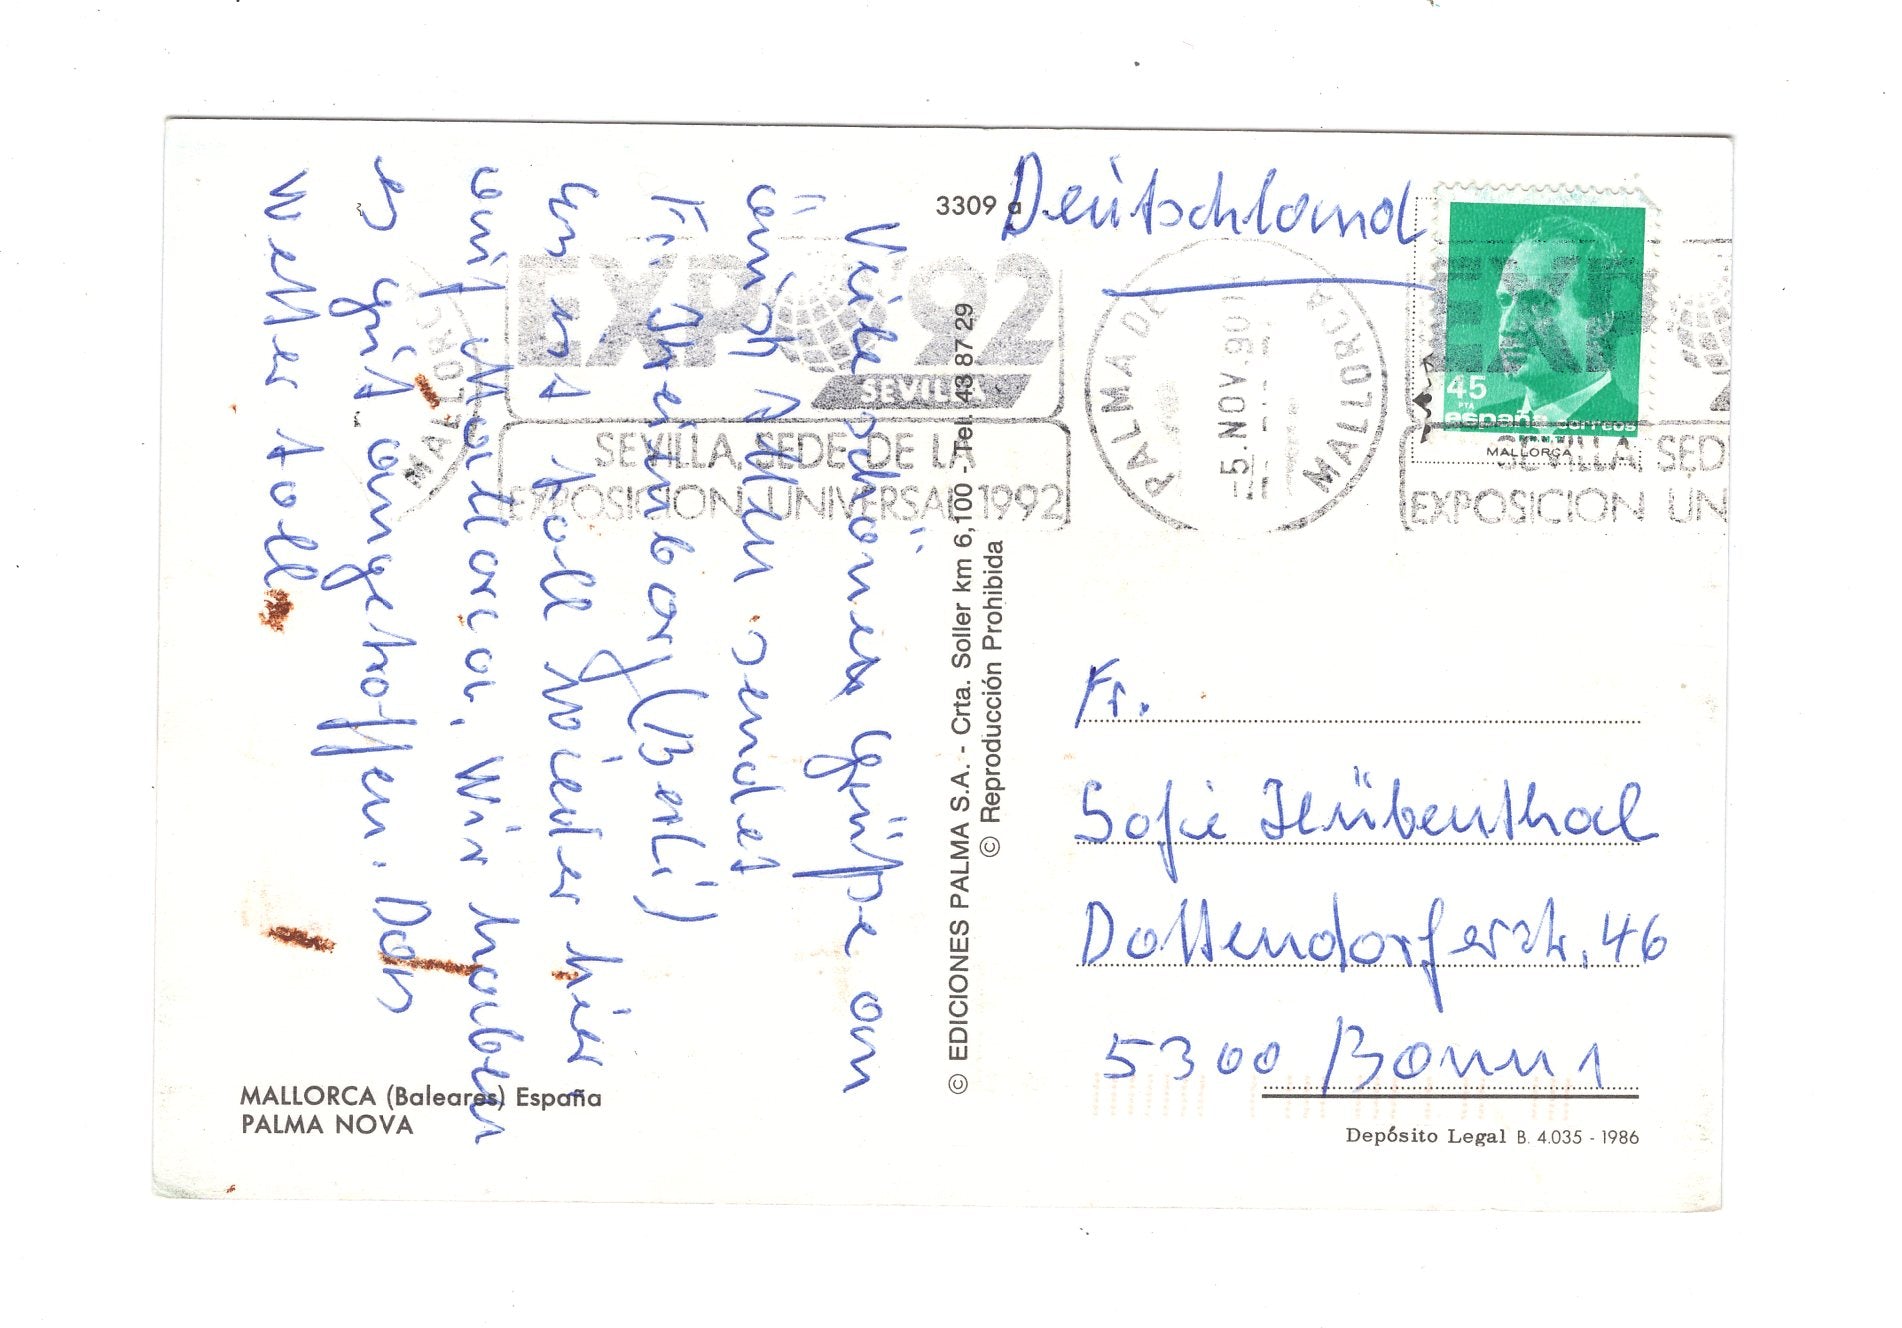 3309 a
Deutschland
EXPO '92
SEVILLA
SEVILLA, SEDE DE LA
EXPOSICION UNIVERSAL 1992
PALMA DE MALLORCA
-5. NOV. 90
MALLORCA
45
PTA
españa
correos
MALLORCA
EXP
SEVILLA, SED
EXPOSICION UN
Viele schöne Grüße an
euch Allen sendet
Fr. (Berli)
Es ist toll wieder hier
auf Mallorca. Wir haben
es gut angetroffen. Das
Wetter toll
© EDICIONES PALMA S.A. - Crta. Soller km 6,100 - Tel. 43 87 29
© Reproducción Prohibida
Fr.
Sofie Hübenthal
Dottendorferstr. 46
5300 Bonn 1
MALLORCA (Baleares) España
PALMA NOVA
Depósito Legal B. 4.035 - 1986